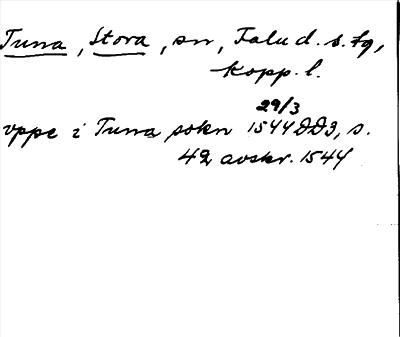 Tuna, Stora, sn, Falu d. s. tg,
Kopp. l.
29/3
vppe i Tuna sokn 1544 DD3, s.
42 avskr. 1544